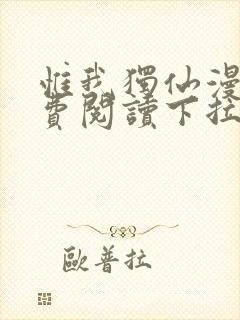 惟我獨仙漫
費閱讀下拉
歐普拉